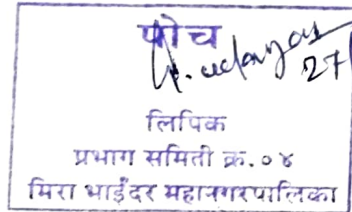 पोच
27
लिपिक
प्रभाग समिती क्र. ०४
मिरा भाईंदर महानगरपालिका